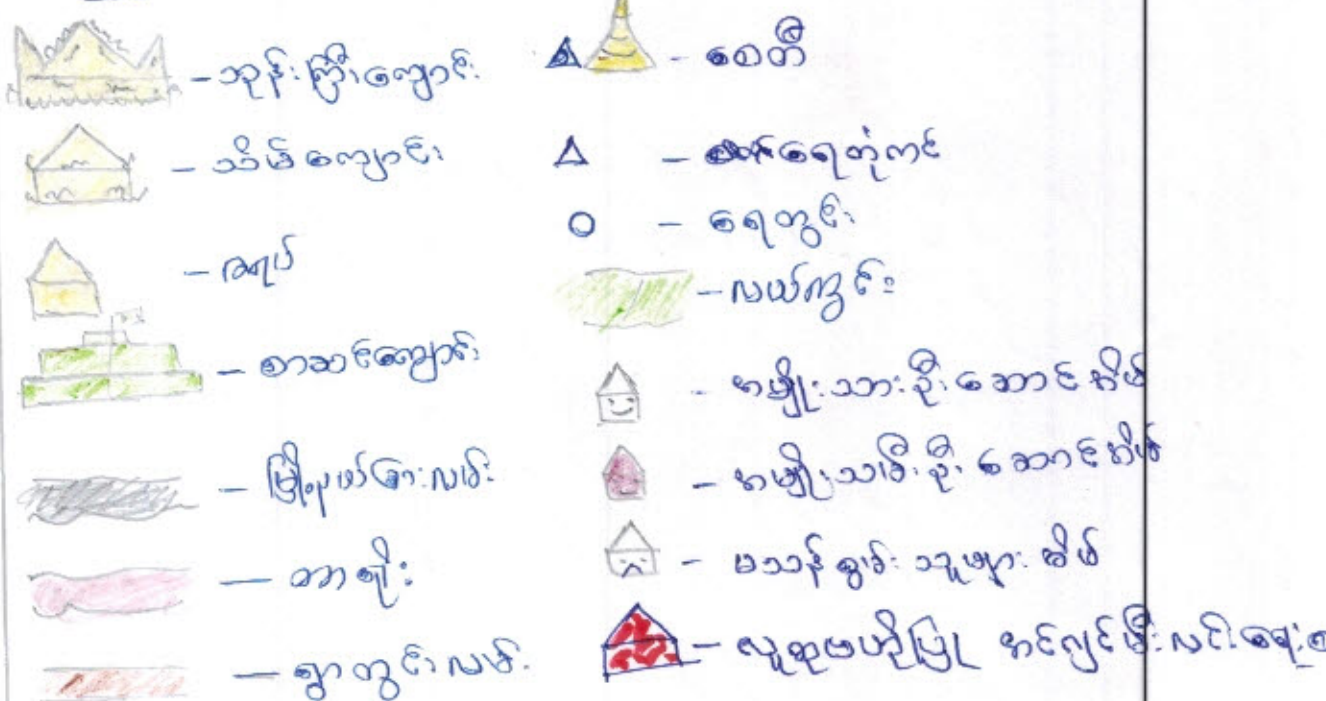 – ဘုန်းကြီးကျောင်း
– သိမ်ကျောင်း
– ဇရပ်
– စာသင်ကျောင်း
– မြို့နယ်ခြားလမ်း
– တာရိုး
– ရွာတွင်းလမ်း
– စေတီ
– ရေတုံကင်
– ရေတွင်း
– လယ်ကွင်း
– အမျိုးသားဦးဆောင်အိမ်
– အမျိုးသမီးဦးဆောင်အိမ်
– မသန်စွမ်းသူများအိမ်
– လူထုဗဟိုပြု အင်ဂျင်မီးလင်းရေး